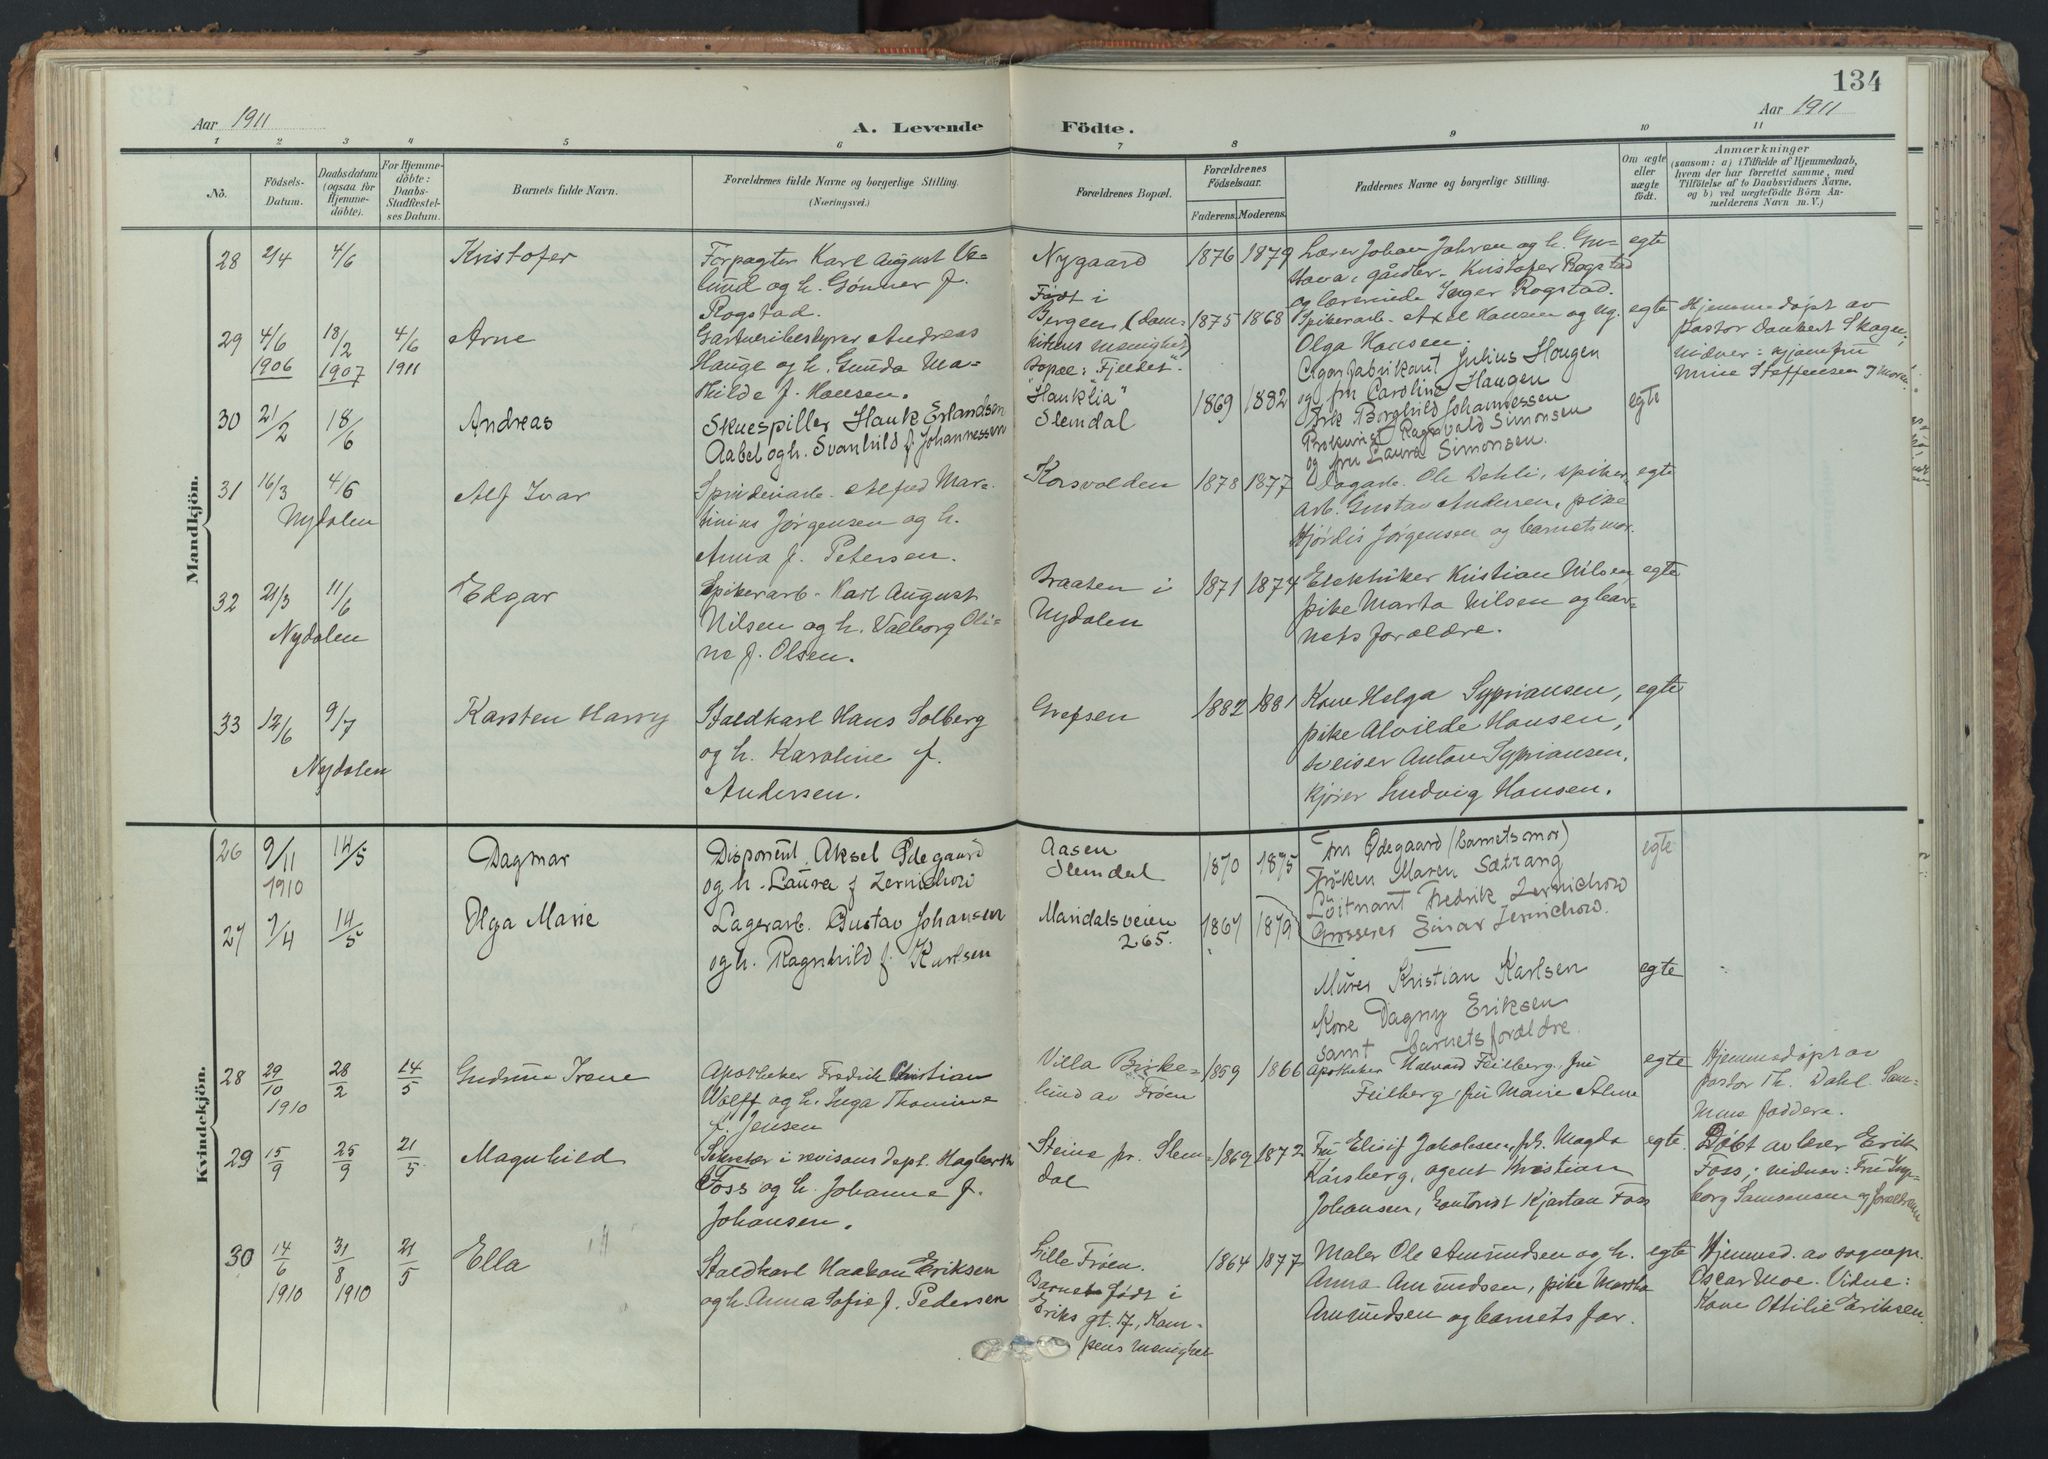 134
Aar 1911
A. Levende
Födte.
Aar 1911
1 2 3 4 5 6 7 8 9 10 11
No.
Födsels-
Datum.
Daabsdatum
(ogsaa for
Hjemme-
döbte).
For Hjemme-
döbte:
Daabs-
Stadfæstel-
ses Datum.
Barnets fulde Navn.
Forældrenes fulde Navne og borgerlige Stilling.
(Næringsvei.)
Forældrenes Bopæl.
Forældrenes
Födselsaar.
Faderens. Moderens.
Faddernes Navne og borgerlige Stilling.
Om ægte
eller
uægte
födt.
Anmærkninger
(saasom: a) i Tilfælde af Hjemmedaab,
hvem der har forrettet samme, med
Tilföielse af to Daabsvidners Navne,
og b) ved uægtefödte Börn An-
melderens Navn m. V.)
Mandkjön.
28 2/4 4/6
Kristofer
Forpagter Karl August
og h. Gunner f.
Rogstad.
Nygaard
1876 1879
Lærer Johan Jahren og h. Gu-
stava, gårdbr. Kristofer Rogstad
og lærerinde Inger Rogstad.
egte
29 4/6 1906 18/2 1907 4/6 1911
Arne
Gartneribestyrer Andreas
Hauge og h. Gunda Ma-
thilde f. Hansen.
Født i
Bergen (Dom-
kirkens menighet)
Bopæl: "Fjeldet".
1875 1868
Spikerarb. Axel Hansen og
Olga Hansen.
Cigarfabrikant Julius Hougen
og fru Caroline Haugen
egte
Hjemmedøpt av
pastor Dankert Skagen;
vidner: jomfru
Mine Steffensen og moren
30 21/2 18/6
Andreas
Skuespiller Hauk Erlandsen
Aabel og h. Svanhild f. Johannessen
"Hauklia"
Slemdal
1869 1882
Frk Borghild Johannessen
Prokurist Ragnvald Simonsen
og fru Laura Simonsen.
egte
31 16/3 4/6
Nydalen
Alf Ivar
Spinderiarb. Alfred Mar-
tinius Jørgensen og h.
Anna f. Petersen.
Korsvolden
1878 1877
Dagarb. Ole Dehli, spiker-
arb. Gustav Andersen, pike
Hjørdis Jørgensen og barnets mor.
egte
32 21/3 11/6
Nydalen
Edgar
Spikerarb. Karl August
Nilsen og h. Valborg Oli-
ne f. Olsen.
Braaten i
Nydalen
1871 1874
Elektriker Kristian Nilsen
pike Marta Nilsen og bar-
nets forældre.
egte
33 12/6 9/7
Nydalen
Karsten Harry
Staldkarl Hans Solberg
og h. Karoline f.
Andersen.
Grefsen
1882 1881
Kone Helga Sypriansen,
pike Alvilde Hansen,
sveiser Anton Sypriansen,
kjører Ludvig Hansen.
egte
Kvindekjön.
26 9/11 1910 14/5
Dagmar
Disponent Aksel Ødegaard
og h. Laura f. Zernichow
Aasen
Slemdal
1870 1875
Fru Ødegaard (barnets mor)
Frøken Maren Sætrang
Løitnant Fredrik Zernichow
Grosserer Einar Zernichow.
egte
27 7/4 14/5
Olga Marie
Lagerarb. Gustav Johansen
og h. Ragnhild f. Karlsen
Maridalsveien
265.
1867 1879
Murer Kristian Karlsen
Kone Dagny Eriksen
samt barnets forældre.
egte
28 29/10 1910 28/2 14/5
Gudrun Irene
Apotheker Fredrik Christian
Wolff og h. Inga Thomine
f. Jensen
Villa Birke-
lund av Frøen
1859 1866
Apotheker Halvard Feilberg, fru
Feilberg, fru Marie Alme
egte
Hjemmedøpt av
pastor Th. Dahl. Sam-
me faddere.
29 15/9 25/9 21/5
Magnhild
Sekretær i revisions dept. Hagbarth
Foss og h. Johanne f.
Johansen.
Steine pr. Slem-
dal
1869 1872
Fru Elisif Jakobsen, frk. Magda
Kårsberg, agent Kristian
Johansen, kontorist Kjartan Foss
egte
Døbt av lærer Erik
Foss; vidner: Fru Inge-
borg Samsonsen og forældrene
30 14/6 1910 31/8 1910 21/5
Ella
Staldkarl Haakon Eriksen
og h. Anna Sofie f. Pedersen
Lille Frøen.
Barnet født i
Eriks gt. 17, Kam-
pens menighet
1864 1877
Maler Ole Amundsen og h.
Anna Amundsen, pike Martha
Amundsen og barnets far.
egte
Hjemmed. av sognepr.
Oscar Moe. Vidne:
Kone Ottilie Eriksen.